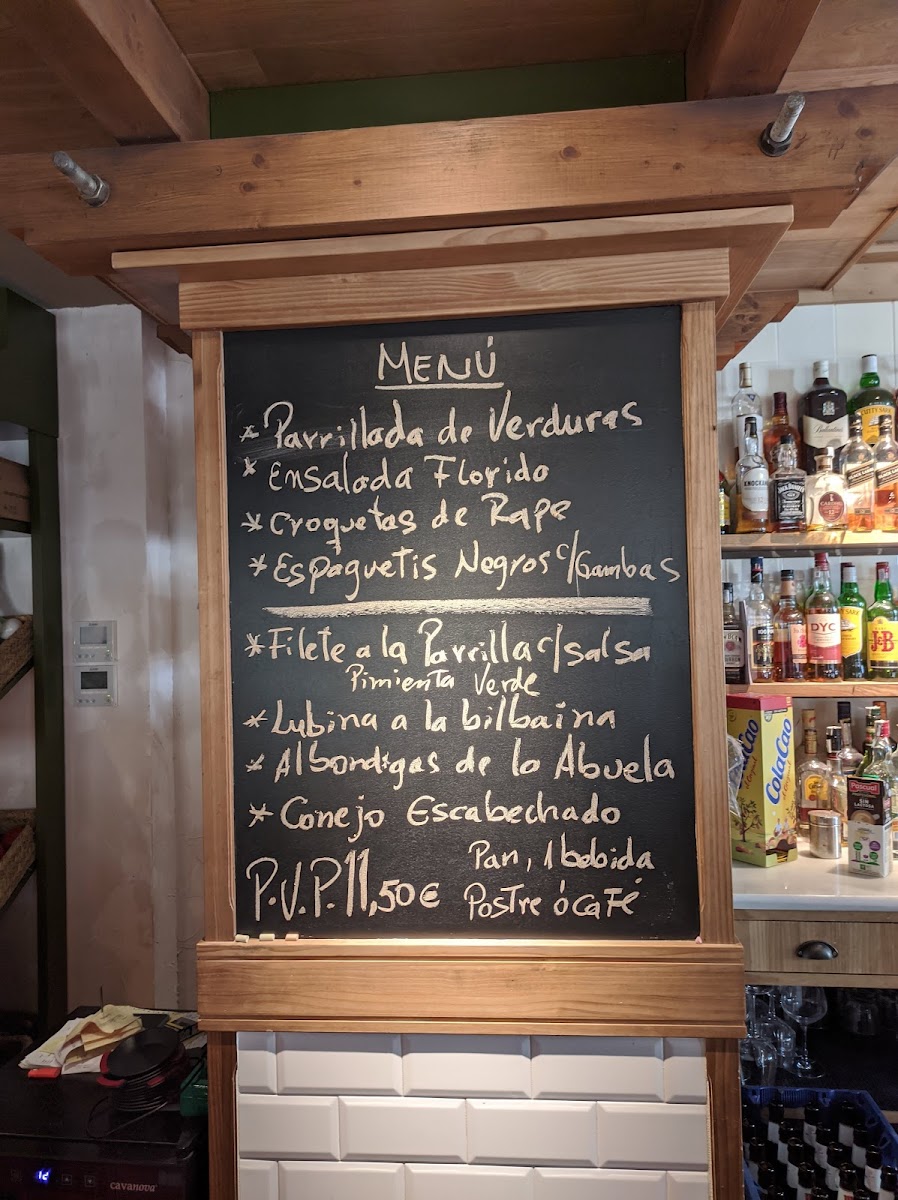 MENÚ
* Parrillada de Verduras
* Ensalada Florido
* Croquetas de Rape
* Espaguetis Negros c/Gambas
* Filete a la Parrilla c/salsa
Pimienta Verde
* Lubina a la bilbaina
* Albondigas de la Abuela
* Conejo Escabechado
P.V.P. 11,50€
Pan, 1 bebida,
Postre ó café
Ballantine's
CUTTY SARK
KNOCKANDO
JACK DANIEL'S
DYC
J&B
ColaCao
ColaCao
Pascual
SIN
LACTOSA
12
cavanova